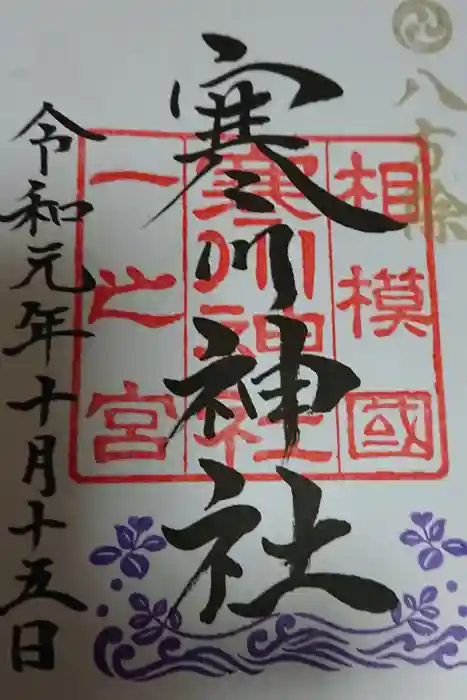 八方除
寒川神社
相模國
寒川神社
一之宮
令和元年十月十五日